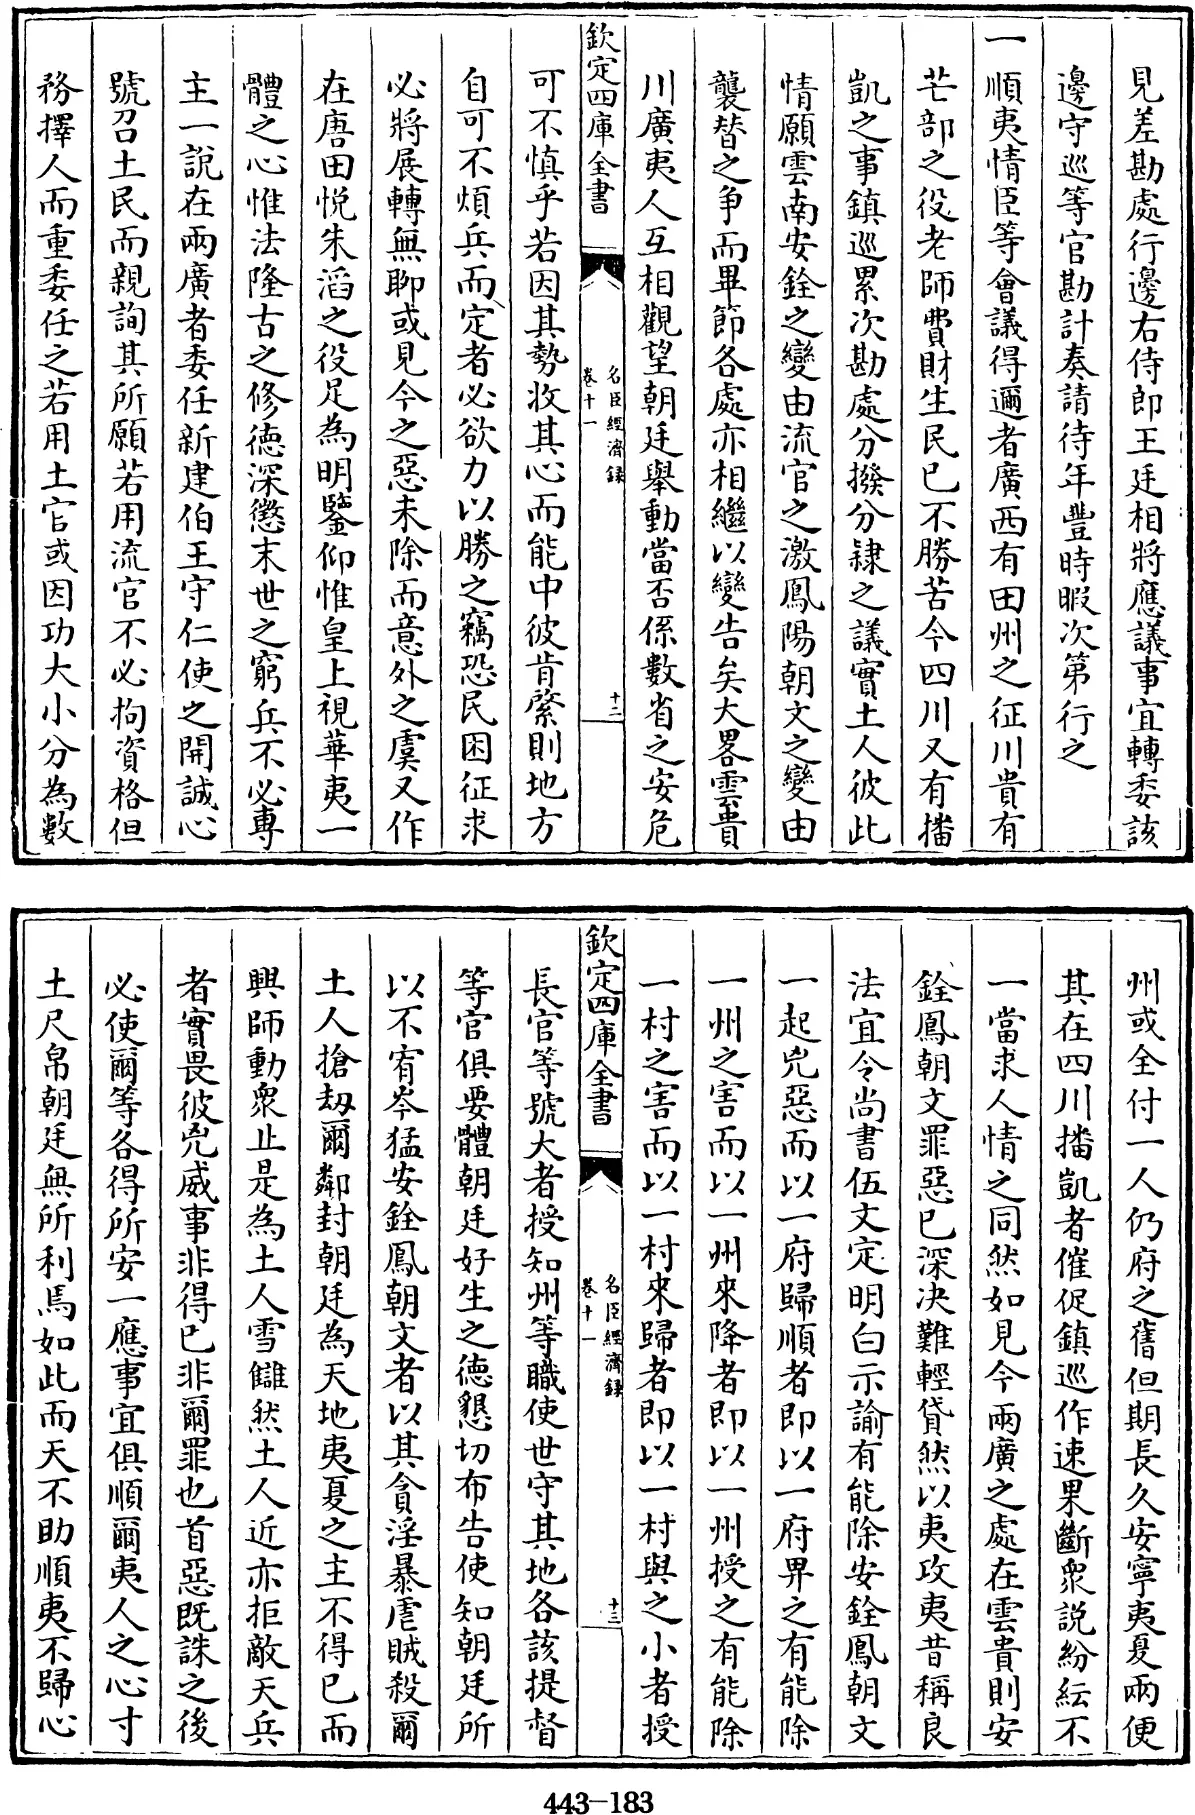 見差勘處行邊右侍郎王廷相將應議事宜轉委該
邊守巡等官勘計奏請待年豐時暇次第行之
一順夷情臣等會議得邇者廣西有田州之征川貴有
芒部之役老師費財生民已不勝苦今四川又有播
凱之事鎮巡累次勘處分撥分隸之議實土人彼此
情願雲南安銓之變由流官之激鳳陽朝文之變由
襲替之爭而畢節各處亦相繼以變告矣大畧雲貴
川廣夷人互相觀望朝廷舉動當否係數省之安危
欽定四庫全書
名臣經濟録
卷十一
十二
可不慎乎若因其勢收其心而能中彼肯綮則地方
自可不煩兵而定者必欲力以勝之竊恐民困征求
必將展轉無聊或見今之惡未除而意外之虞又作
在唐田悦朱滔之役足為明鑒仰惟皇上視華夷一
體之心惟法隆古之修德深懲末世之窮兵不必專
主一説在兩廣者委任新建伯王守仁使之開誠心
號召土民而親詢其所願若用流官不必拘資格但
務擇人而重委任之若用土官或因功大小分為數
州或全付一人仍府之舊但期長久安寧夷夏兩便
其在四川播凱者催促鎮巡作速果斷衆説紛紜不
一當求人情之同然如見今兩廣之處在雲貴則安
銓鳳朝文罪惡已深決難輕貸然以夷攻夷昔稱良
法宜令尚書伍文定明白示諭有能除安銓鳳朝文
一起兇惡而以一府歸順者即以一府畀之有能除
一州之害而以一州來降者即以一州授之有能除
一村之害而以一村來歸者即以一村與之小者授
欽定四庫全書
名臣經濟録
卷十一
十三
長官等號大者授知州等職使世守其地各該提督
等官俱要體朝廷好生之德懇切布告使知朝廷所
以不宥岑猛安銓鳳朝文者以其貪淫暴虐賊殺爾
土人搶刼爾鄰封朝廷為天地夷夏之主不得已而
興師動衆止是為土人雪讎然土人近亦拒敵天兵
者實畏彼兇威事非得已非爾罪也首惡既誅之後
必使爾等各得所安一應事宜俱順爾夷人之心寸
土尺帛朝廷無所利焉如此而天不助順夷不歸心
443-183